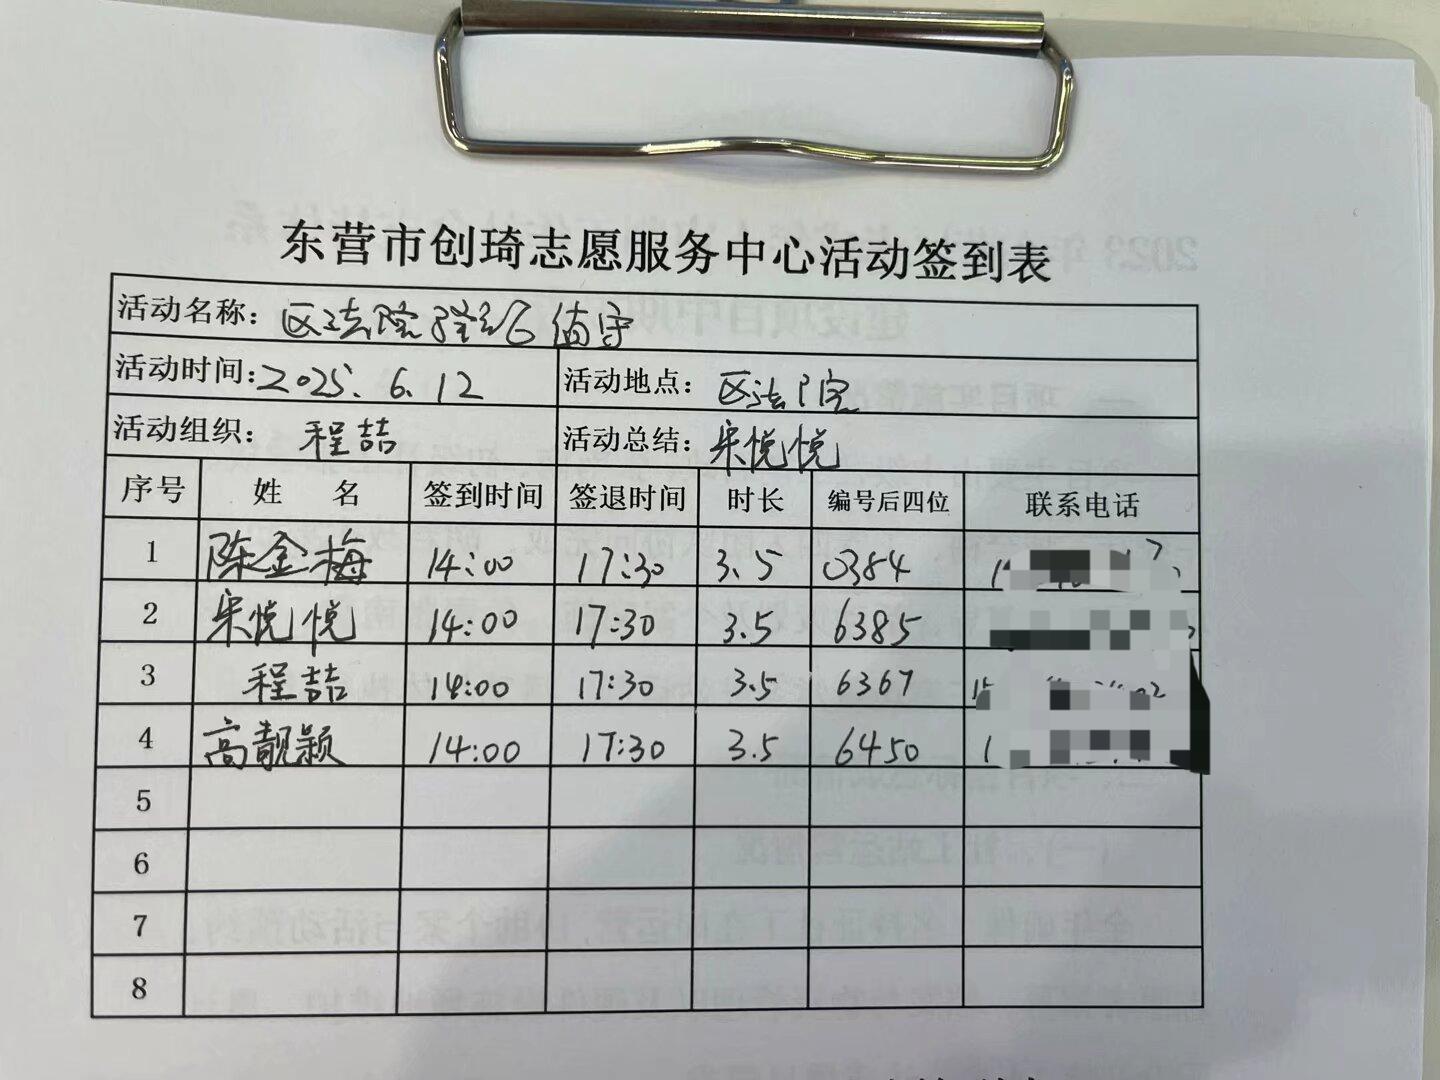 东营市创琦志愿服务中心活动签到表
活动名称：区法院 值守
活动时间：2025.6.12 活动地点：区法院
活动组织：程喆 活动总结：宋悦悦
序号 姓名 签到时间 签退时间 时长 编号后四位 联系电话
1 陈金梅 14:00 17:30 3.5 0384
2 宋悦悦 14:00 17:30 3.5 6385
3 程喆 14:00 17:30 3.5 6367
4 高靓颖 14:00 17:30 3.5 6450
5
6
7
8